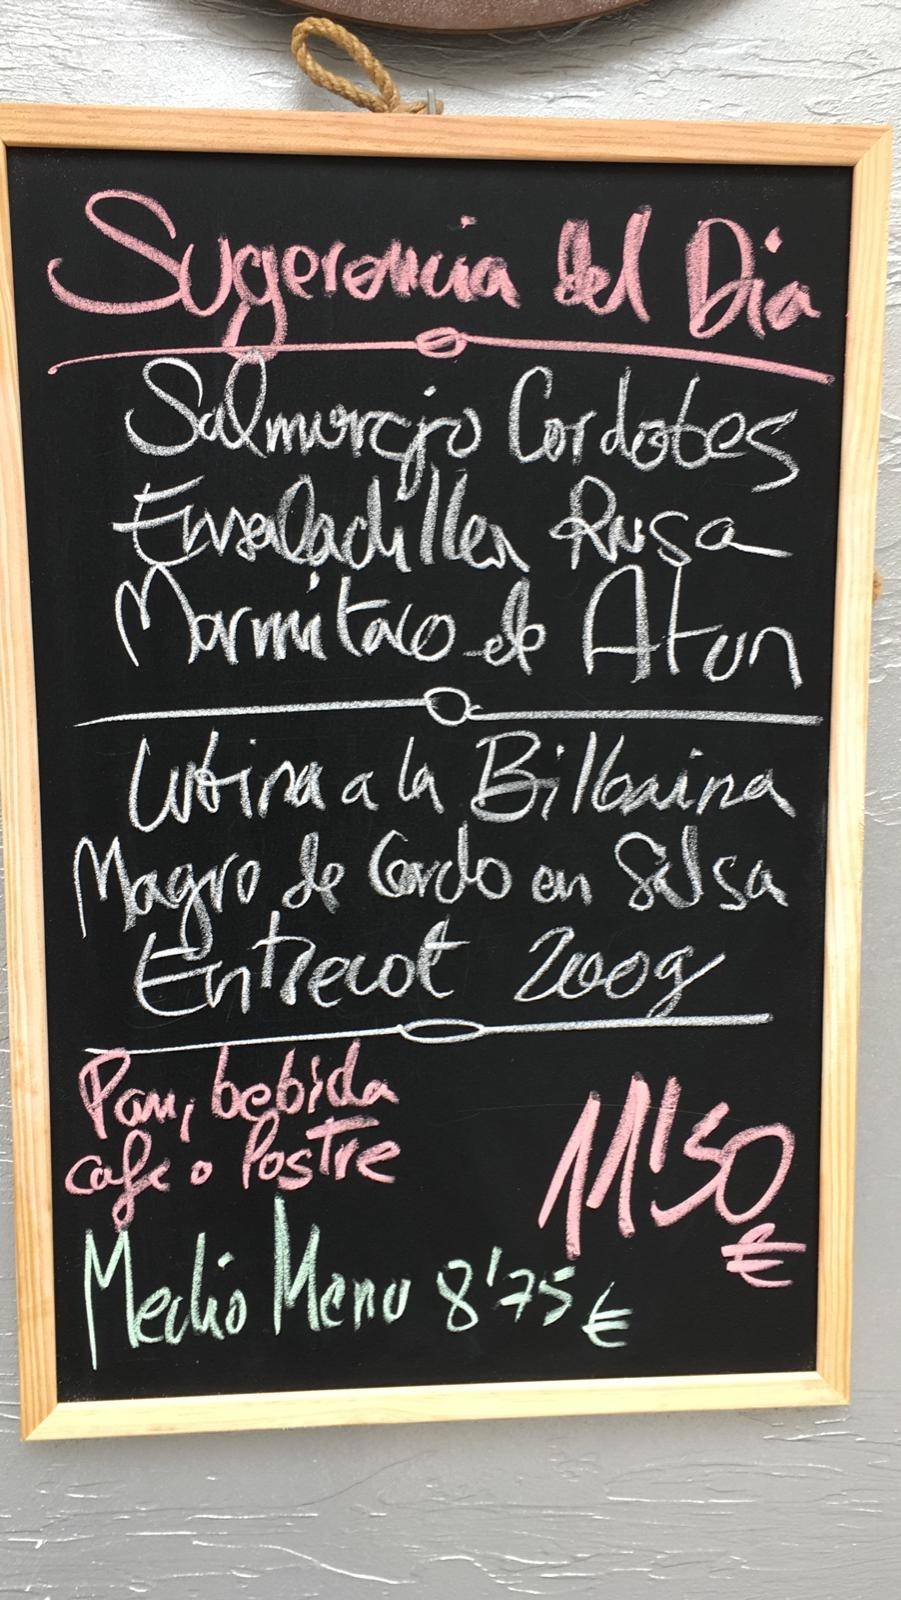 Sugerencia del Dia
Salmorejo Cordobes
Ensaladilla Rusa
Marmitaco de Atun
a la Bilbaina
Magro de Cerdo en Salsa
Entrecot 200g
Pan, bebida
cafe o Postre
11'50
€
Medio Menu 8'75 €